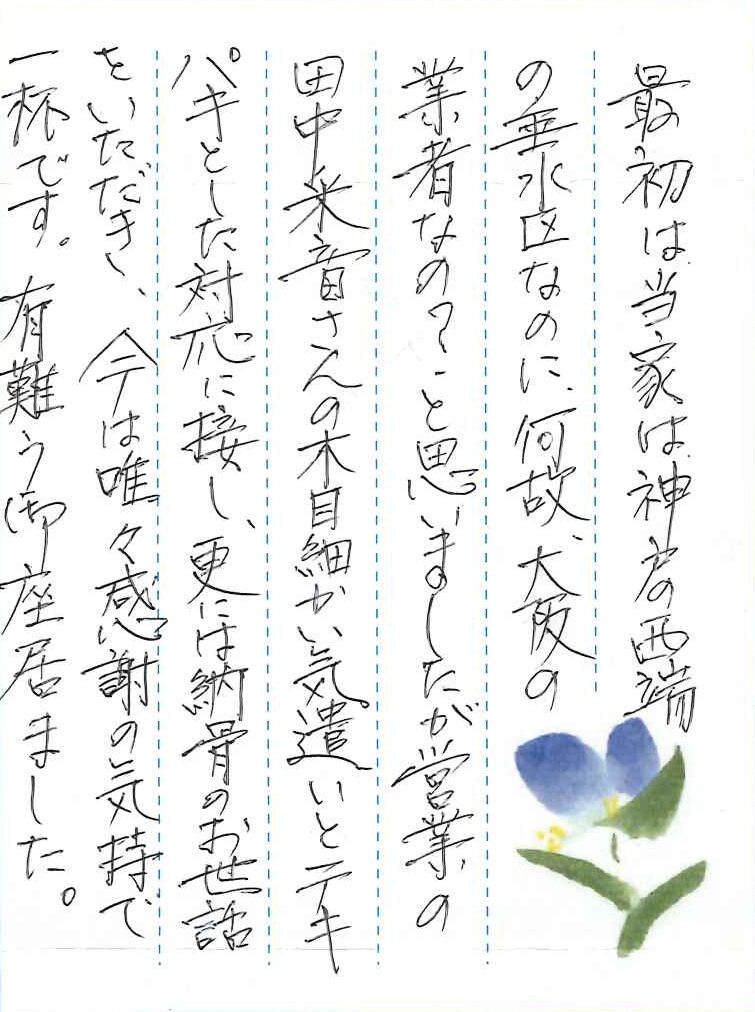 最初は当家は神戸の西端
の垂水区なのに、何故、大阪の
業者なの?と思いましたが営業の
田中采音さんの木目細かい気遣いとテキ
パキとした対応に接し、更には納骨のお世話
をいただき、今は唯々感謝の気持で
一杯です。有難う御座居ました。